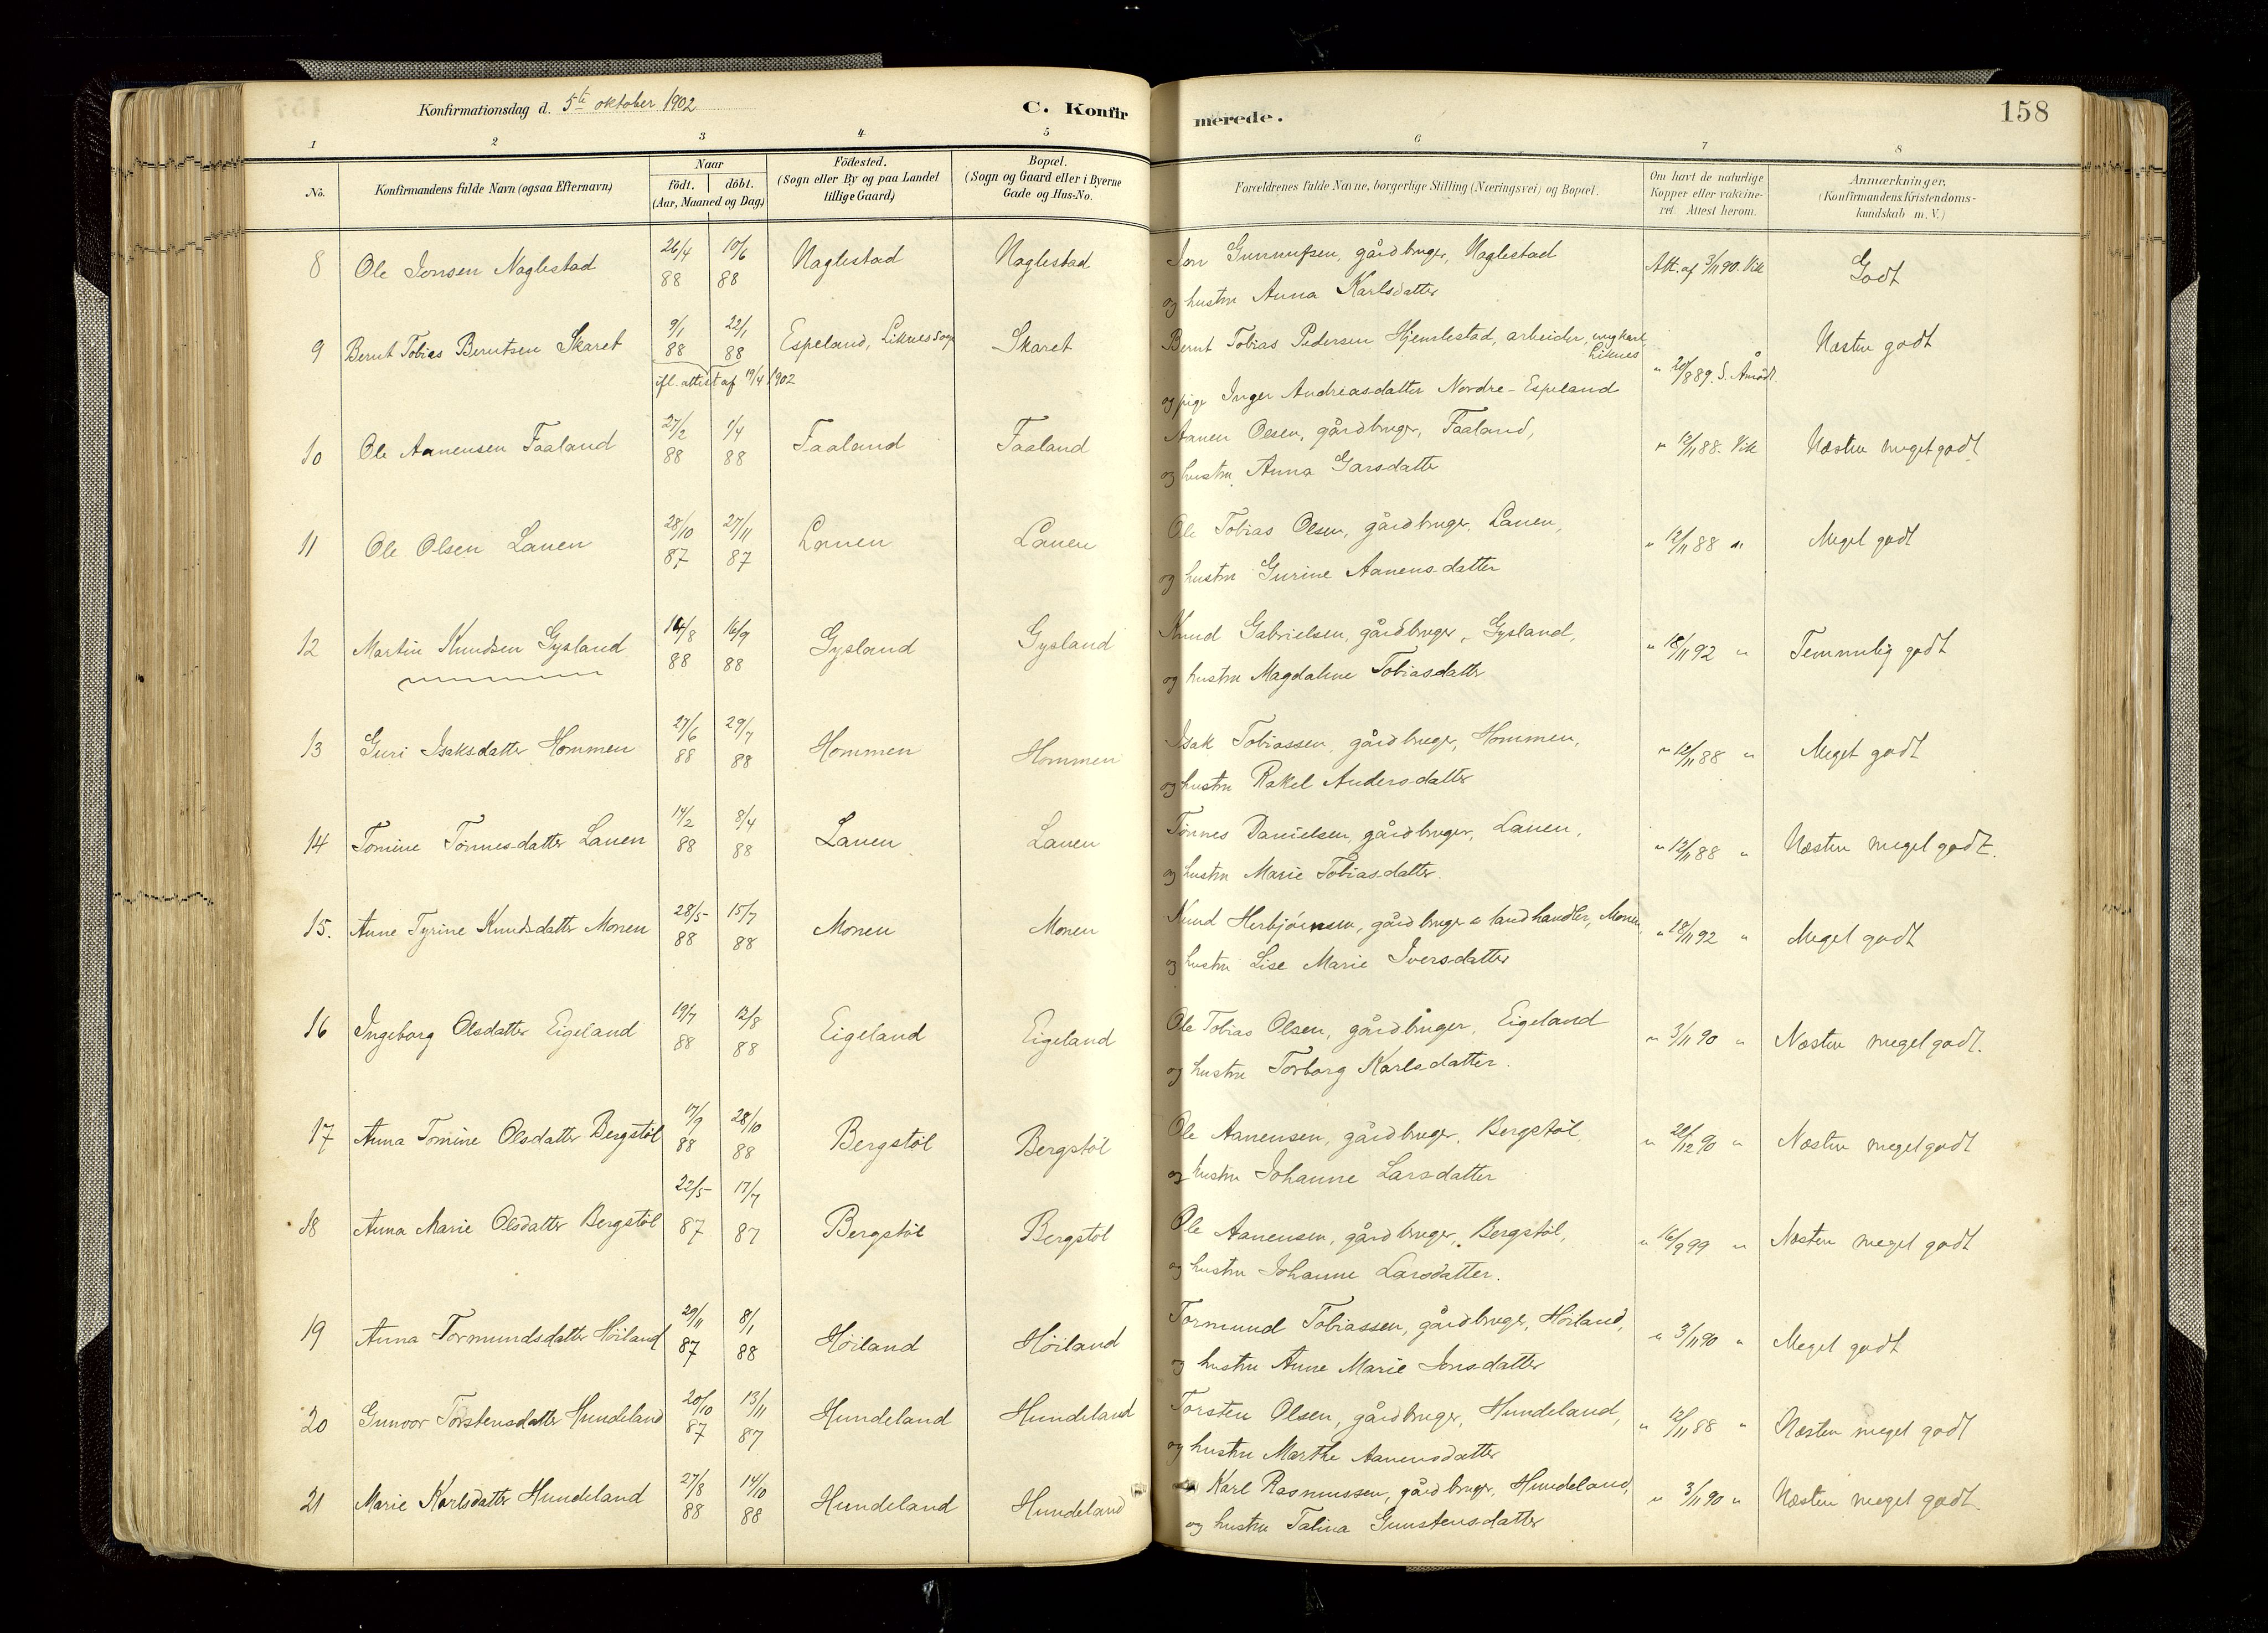 Konfirmationsdag d. 5te oktober 1902 C. Konfirmerede. 158
1 2 3 4 5 6 7 8
No. Konfirmandens fulde Navn (ogsaa Efternavn) Naar födt. döbt. (Aar, Maaned og Dag) Födested. (Sogn eller By og paa Landet tillige Gaard) Bopæl. (Sogn og Gaard eller i Byerne Gade og Hus-No. Forældrenes fulde Navne, borgerlige Stilling (Næringsvei) og Bopæl. Om havt de naturlige Kopper eller vaccineret Attest herom. Anmærkninger, (Konfirmandens Kristendomskundskab m. V.)
8 Ole Jonsen Naglestad 26/4 88 10/6 88 Naglestad Naglestad Jon Gunnufsen, gårdbruger, Naglestad Att. af 3/11 90. Vik Godt
og hustru Anna Karlsdatter
9 Bernt Tobias Berntsen Skaret 9/1 88 22/1 88 Espeland, Liknes sogn Skaret Bernt Tobias Pedersen Hjemlestad, arbeider, ungkarl, Liknes " 20/8 89. S. Åmodt Næsten godt
ifl. attest af 19/4 1902
og pige Inger Andreasdatter Nordre-Espeland
10 Ole Aanensen Faaland 27/2 88 1/4 88 Faaland Faaland Aanen Olsen, gårdbruger, Faaland, " 12/11 88. Vik Næsten meget godt
og hustru Anna Garsdatter
11 Ole Olsen Lauen 28/10 87 27/11 87 Lauen Lauen Ole Tobias Olsen, gårdbruger, Lauen, " 12/11 88 " Meget godt
og hustru Gurine Aanensdatter
12 Martin Knudsen Gysland 14/8 88 16/9 88 Gysland Gysland Knud Gabrielsen, gårdbruger, Gysland, " 18/11 92 " Temmelig godt
og hustru Magdalene Tobiasdatter
13 Guri Isaksdatter Hommen 27/6 88 29/7 88 Hommen Hommen Isak Tobiassen, gårdbruger, Hommen, " 12/11 88 " Meget godt
og hustru Rakel Andersdatter
14 Tomine Tönnesdatter Lauen 14/2 88 8/4 88 Lauen Lauen Tönnes Danielsen, gårdbruger, Lauen, " 12/11 88 " Næsten meget godt.
og hustru Marie Tobiasdatter.
15. Anne Tyrine Knudsdatter Monen 28/5 88 15/7 88 Monen Monen Knud Herbjörnsen, gårdbruger & landhandler, Monen, " 18/11 92 " Meget godt
og hustru Lise Marie Iversdatter
16 Ingeborg Olsdatter Eigeland 19/7 88 12/8 88 Eigeland Eigeland Ole Tobias Olsen, gårdbruger, Eigeland " 3/11 90 " Næsten meget godt.
og hustru Torborg Karlsdatter.
17 Anna Tomine Olsdatter Bergstöl 17/9 88 28/10 88 Bergstöl Bergstöl Ole Aanensen, gårdbruger, Bergstöl, " 20/12 90 " Næsten meget godt
og hustru Johanne Larsdatter
18 Anna Marie Olsdatter Bergstöl 22/5 87 17/7 87 Bergstöl Bergstöl Ole Aanensen, gårdbruger, Bergstöl, " 16/9 99 " Næsten meget godt
og hustru Johanne Larsdatter.
19 Anna Tormundsdatter Höiland 29/11 87 8/1 88 Höiland Höiland Tormund Tobiassen, gårdbruger, Höiland, " 3/11 90 " Meget godt
og hustru Anne Marie Jonsdatter
20 Gunvor Torstensdatter Hundeland 20/10 87 13/11 87 Hundeland Hundeland Torsten Olsen, gårdbruger, Hundeland, " 12/11 88 " Næsten meget godt
og hustru Marthe Aanensdatter
21 Marie Karlsdatter Hundeland 27/8 88 14/10 88 Hundeland Hundeland Karl Rasmussen, gårdbruger, Hundeland, " 3/11 90 " Næsten meget godt.
og hustru Talina Gunstensdatter